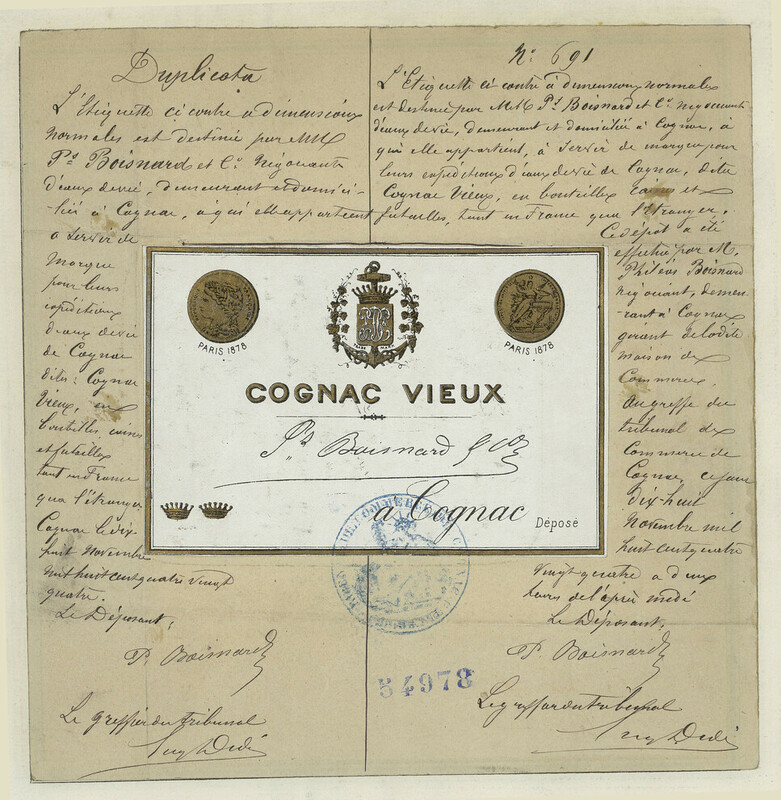 Duplicata
L'Etiquette ci contre a dimensions
normales est destinée par MM
Ps Boisnard et Co Negociants
d'eaux de vie, demeurant et domici-
liés à Cognac, à qui elle appartient
à servir de
marque
pour leurs
expéditions
d'eaux de vie
de Cognac
dites: Cognac
Vieux, en
bouteilles, caisses
et futailles
tant en France
qua l'étranger
Cognac le dix
huit Novembre
mil huit cent quatre vingt
quatre.
Le Déposant,
P. Boisnard
Le greffier du tribunal
No 691
L'Etiquette ci contre à dimensions normales
est destinée par MM Ps Boisnard et Co Negociants
d'eaux de vie, demeurant et domiciliés à Cognac, à
qui elle appartient, à servir de marque pour
leurs expéditions d'eaux de vie de Cognac, dites
Cognac Vieux, en bouteilles et
futailles, tant en France que l'étranger.
Ce dépôt a été
effectué par M.
Philéas Boisnard
négociant, demeu-
rant à Cognac
gérant de la dite
maison de
Commerce.
au greffe du
tribunal de
Commerce de
Cognac, ce jour
dix-huit
Novembre mil
huit cent quatre
vingt quatre a deux
heures de l'après midi
Le Déposant,
P. Boisnard
Le greffier du tribunal
PARIS 1878
PARIS 1878
COGNAC VIEUX
Ps Boisnard & Co
à Cognac
Déposé
54978